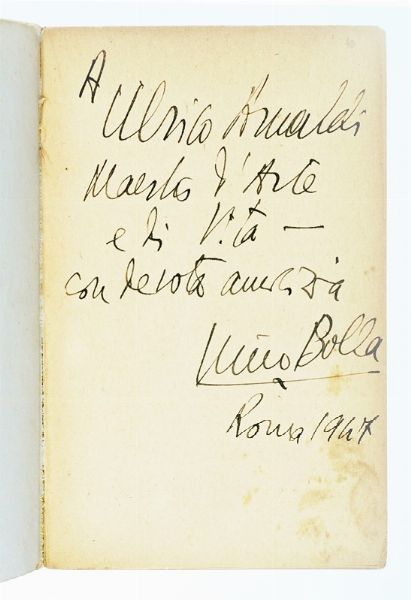 A
Ulrico Arnaldi
Maestro d'Arte
e di Vita —
con devota amicizia
Nino Bolla
Roma 1947